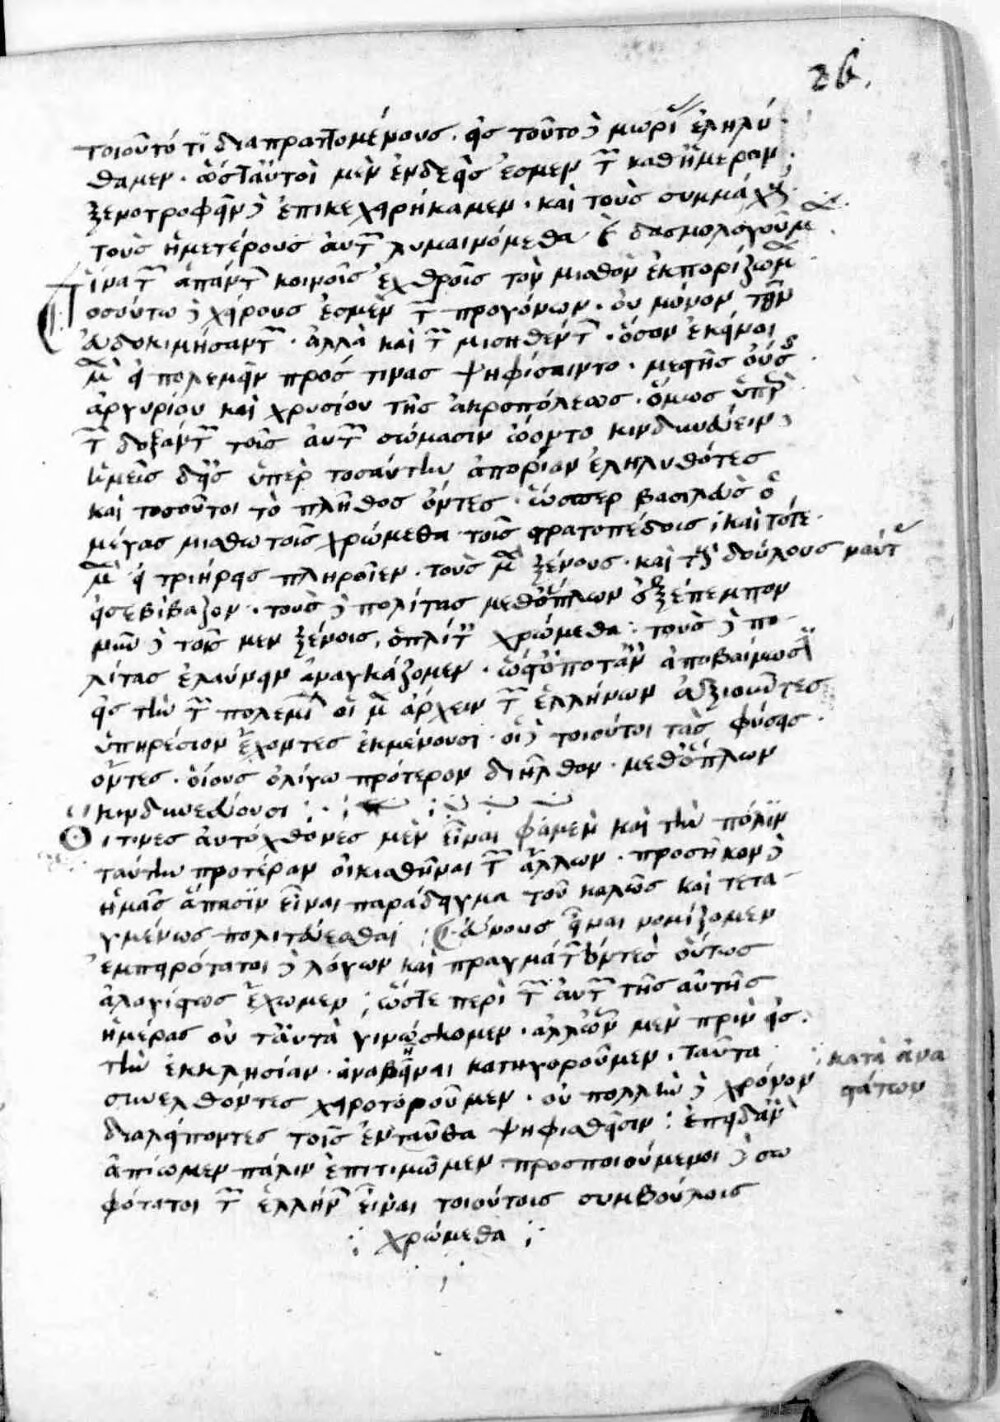 26.
τοιοῦτό τι διαπραττομένους. εἰς τοῦτο δὲ μωρί ἐληλύ
θαμεν. ὥστ' αὐτοὶ μὲν ἐνδεεῖς ἐσμεν τ καθ' ἡμέραν.
ξενοτροφεῖν δὲ ἐπικεχειρήκαμεν. καὶ τοὺς συμμάχ
τοὺς ἡμετέρους αὐτ λυμαινόμεθα καὶ δασμολογοῦμ
ἵνα τ ἁπάντ κοινοῖς ἐχθροῖς τὸν μισθὸν ἐκπορίζωμ
Τοσούτω δὲ χείρους ἐσμὲν τ προγόνων. οὐ μόνον τῶν
εὐδοκιμησάντ. ἀλλὰ καὶ τ μισηθέντ. ὅσον ἐκεῖνοι
μ εἰ πολεμεῖν πρός τινας ψηφίσαιντο. μεστῆς οὔσ
ἀργυρίου καὶ χρυσίου τῆς ἀκροπόλεως. ὅμως ὑπὲρ
τ δοξάντ τοῖς αὐτ σώμασιν ὤοντο κινδυνεύειν
ἡμεῖς δ' εἰς ὑπὲρ τοσαύτην ἀπορίαν ἐληλυθότες
καὶ τοσοῦτοι τὸ πλῆθος ὄντες. ὥσπερ βασιλεὺς ὁ
μέγας μισθωτοῖς χρώμεθα τοῖς στρατοπέδοις; καὶ τότε
μ εἰ τριήρεις πληροῖεν. τοὺς μ ξένους. καὶ τοὺς δούλους ναύτ
εἰσεβίβαζον. τοὺς δὲ πολίτας μεθ' ὅπλων ἐξέπεμπον
νῦν δὲ τοῖς μεν ξένοις, ὁπλίτ χρώμεθα: τοὺς δὲ πο
λίτας ἐλαύνειν ἀναγκάζομεν. ὥσθ' ὁπόταν ἀποβαίνωσ
εἰς τὴν τ πολεμί οἱ μ ἄρχειν τ ἑλλήνων ἀξιοῦντες
ὑπηρέσιον ἔχοντες ἐκμένουσι. οἱ δὲ τοιοῦτοι τὰς φύσεις.
ὄντες. οἵους ὀλίγω πρότερον διῆλθον. μεθ' ὅπλων
κινδυνεύουσι :
Οἵτινες αὐτόχθονες μὲν εἶναι φάμεν καὶ τὴν πόλιν
ταύτην προτέραν οἰκισθῆναι τ ἄλλων. προσῆκον δὲ
ἡμᾶς ἅπασιν εἶναι παράδειγμα τοῦ καλῶς καὶ τετα
γμένως πολιτεύεσθαι
ἐμπειρότατοι δὲ λόγων καὶ πραγμάτ ὄντες οὕτως
ἀλογίστως ἔχωμεν; ὥστε περὶ τ αὐτ τῆς αὐτῆς
ἡμέρας οὐ ταῦτὰ γινώσκομεν. ἀλλ' ὧν μὲν πρὶν εἰς
τὴν ἐκκλησίαν. ἀναβῆναι κατηγοροῦμεν, ταῦτα
συνελθόντες χειροτονοῦμεν. οὐ πολλὺν δὲ χρόνον
κατὰ ἀνα
διαλείποντες τοῖς ἐνταῦθα ψηφισθεῖσιν: ἐπειδὰν
ἀπίωμεν πάλιν ἐπιτιμῶμεν προσποιούμενοι δὲ σω
φότατοι τ ἑλλήν εἶναι τοιούτοις συμβούλοις
χρώμεθα